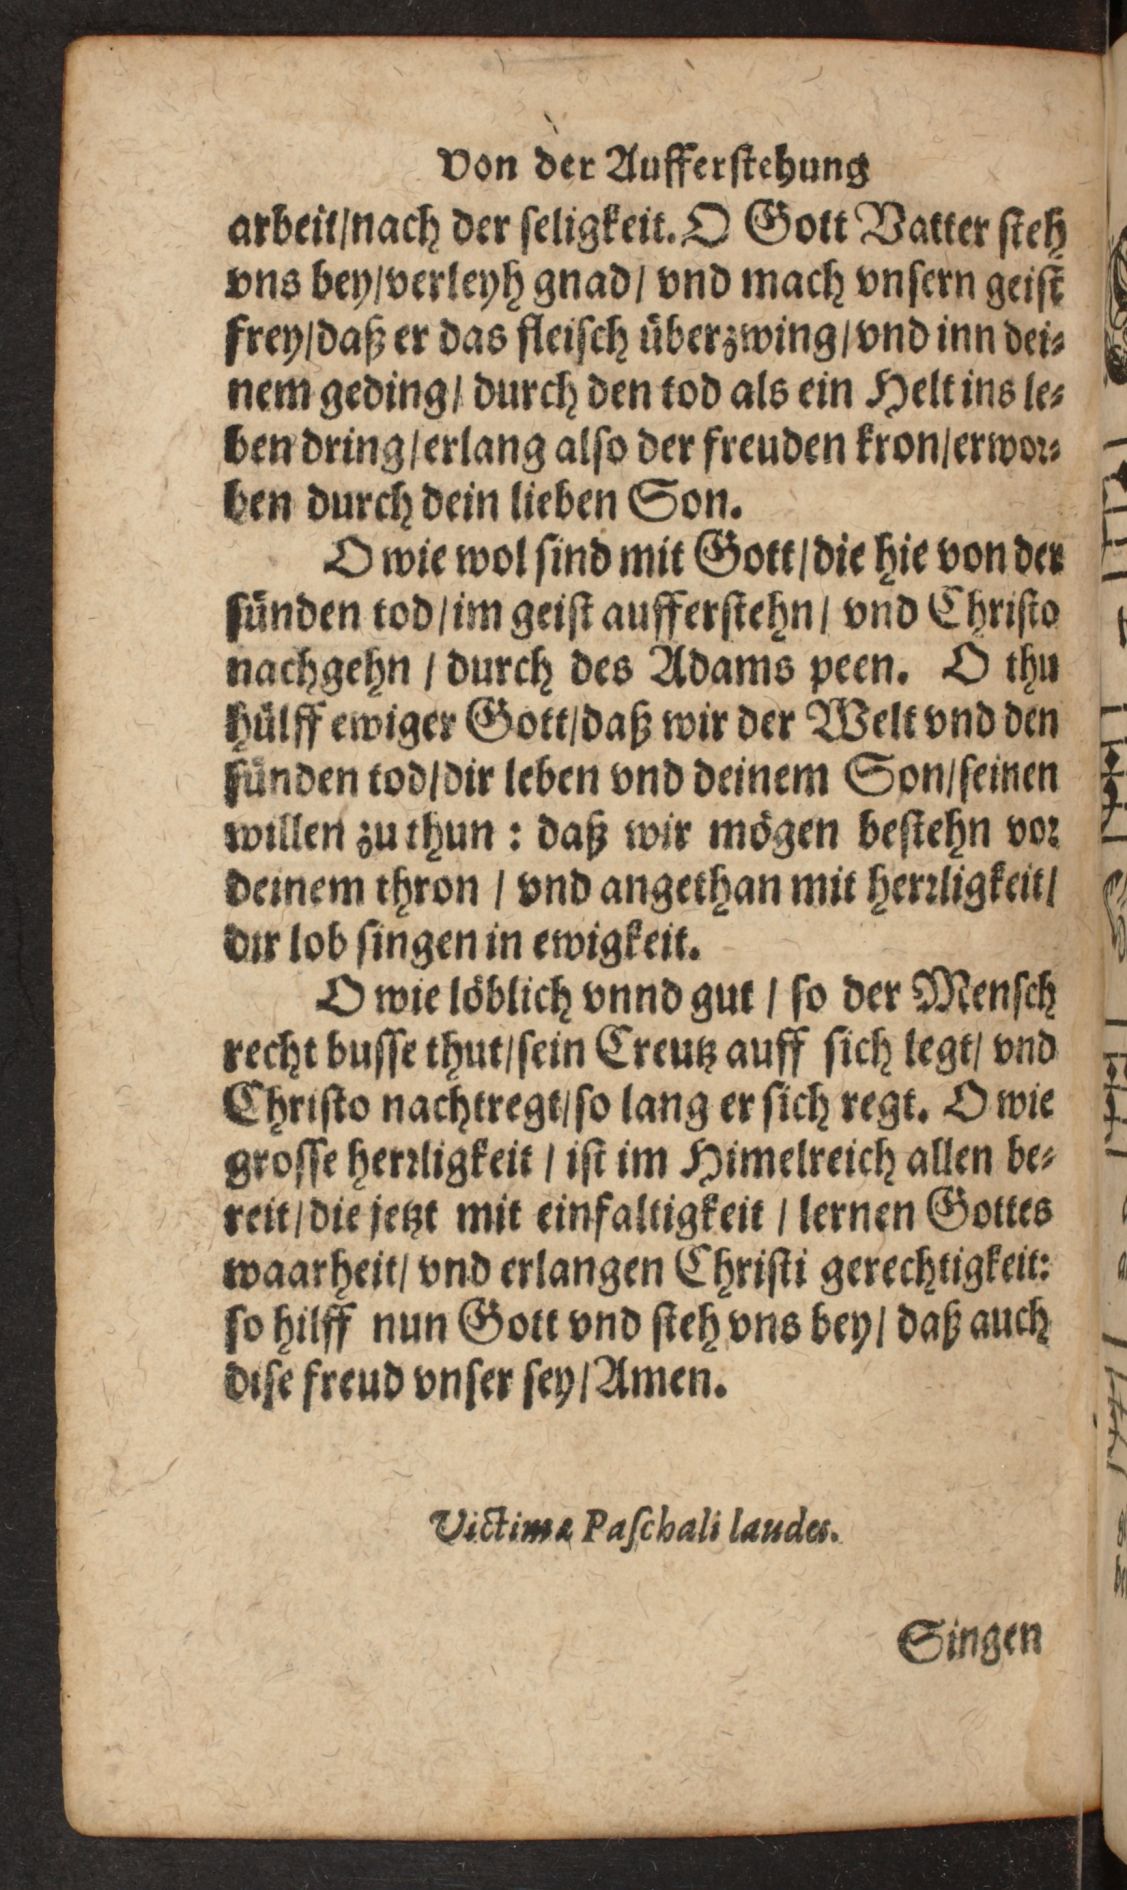 Von der Aufferstehung
arbeit/nach der seligkeit. O Gott Vatter steh
vns bey/verleyh gnad/ vnd mach vnsern geist
frey/daß er das fleisch überzwing/vnd inn dei-
nem geding/ durch den tod als ein Helt ins le-
ben dring/erlang also der freuden kron/erwor-
ben durch dein lieben Son.
O wie wol sind mit Gott/die hie von der
sünden tod/im geist aufferstehn/ vnd Christo
nachgehn / durch des Adams peen. O thu
hülff ewiger Gott/daß wir der Welt vnd den
sünden tod/dir leben vnd deinem Son/seinen
willen zu thun : daß wir mögen bestehn vor
deinem thron / vnd angethan mit herrligkeit/
dir lob singen in ewigkeit.
O wie löblich vnnd gut / so der Mensch
recht busse thut/sein Creutz auff sich legt/ vnd
Christo nachtregt/so lang er sich regt. O wie
grosse herrligkeit / ist im Himelreich allen be-
reit/die jetzt mit einfaltigkeit / lernen Gottes
waarheit/ vnd erlangen Christi gerechtigkeit:
so hilff nun Gott vnd steh vns bey/ daß auch
dise freud vnser sey/Amen.
Victimæ Paschali laudes.
Singen